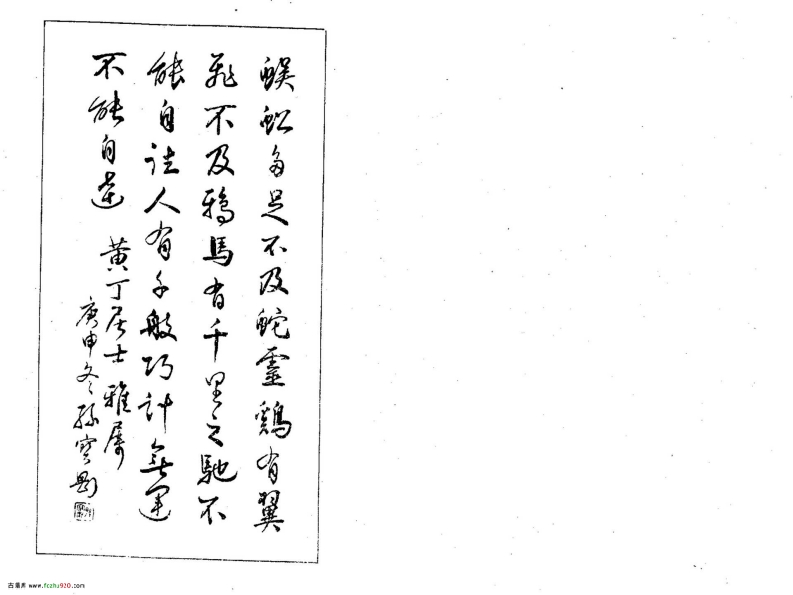 蜈蚣多足不及蛇靈鷄有翼
飛不及鴉馬有千里之馳不
能自往人有千般巧計無運
不能自達 黃丁居士雅属
庚申冬孫寶剛
www.fczhu920.com